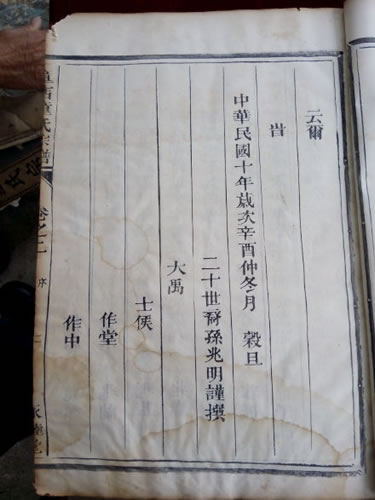 云爾
旹
中華民國十年歲次辛酉仲冬月 穀旦
二十世裔孫兆明謹撰
大禹
士俟
作堂
作中
氏宗譜
卷之二
序